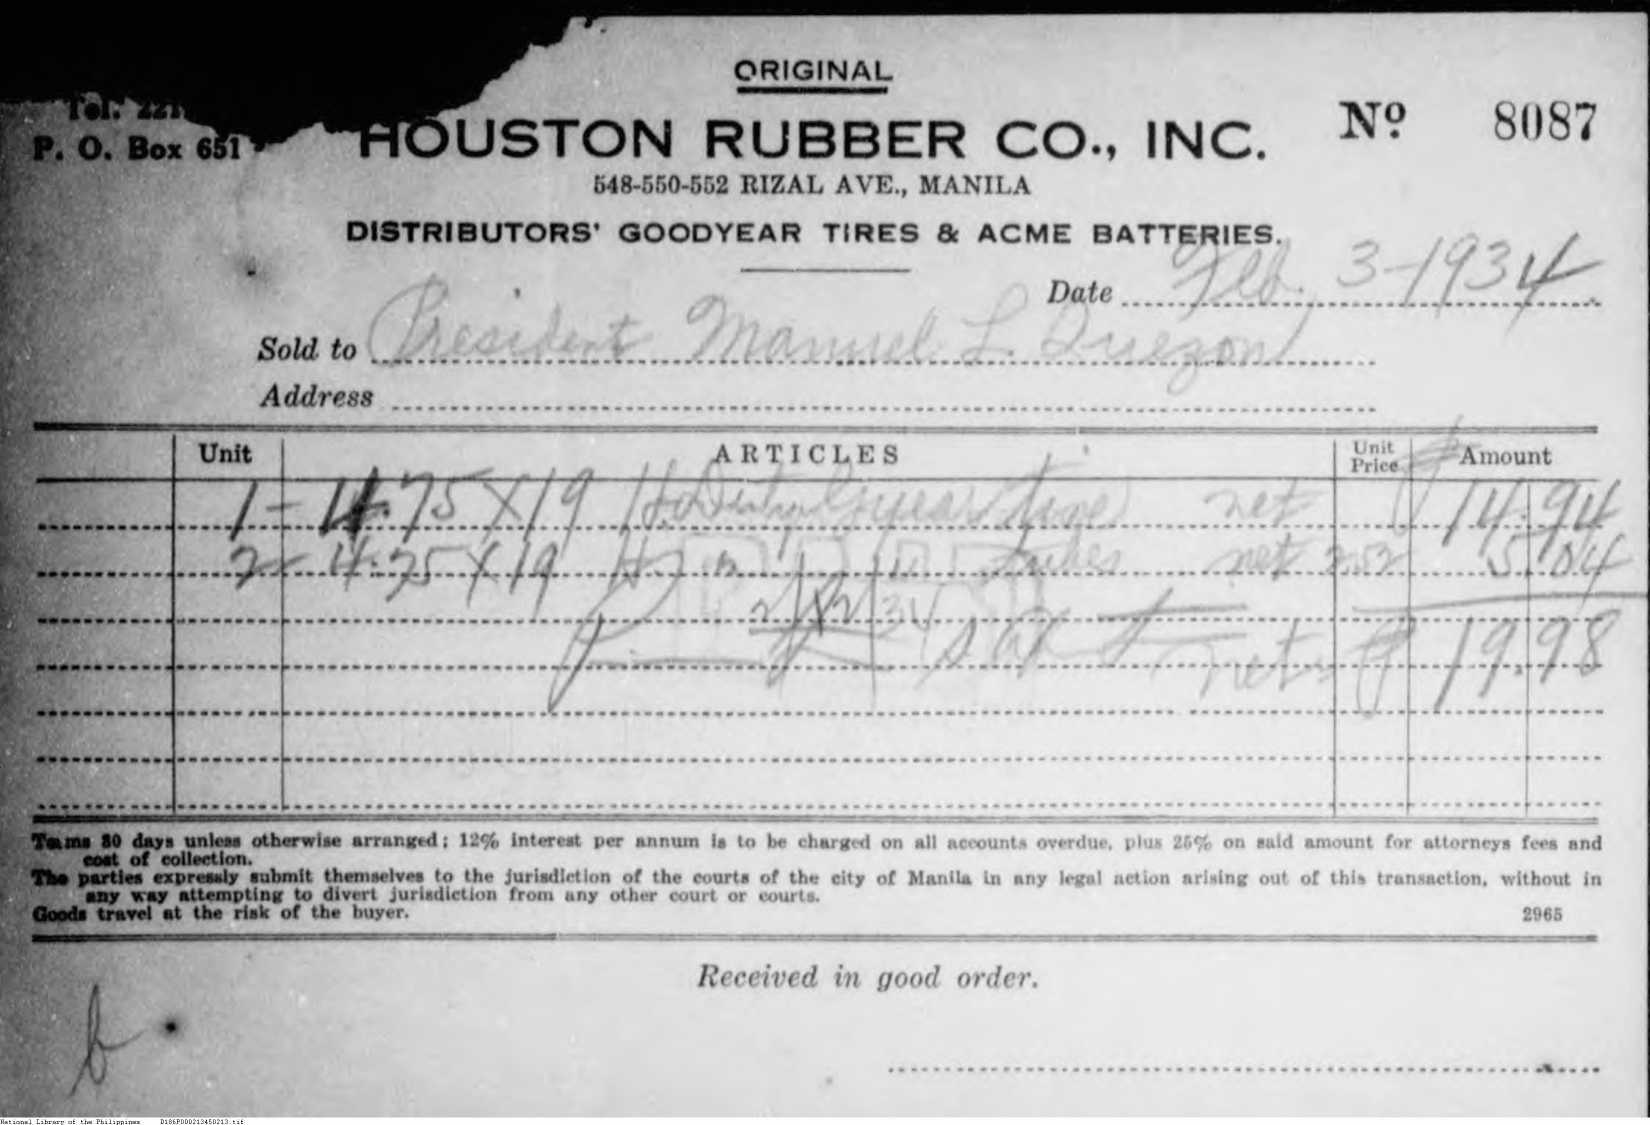 ORIGINAL
Tel. 221
P. O. Box 651
HOUSTON RUBBER CO., INC.
Nº 8087
548-550-552 RIZAL AVE., MANILA
DISTRIBUTORS' GOODYEAR TIRES & ACME BATTERIES.
Date Feb. 3-1934
Sold to President Manuel L. Quezon
Address
Unit ARTICLES Unit Price Amount
1- 4.75 X 19 H. Duty Gyear tire net ₱ 14.94
2- 4.75 X 19 H " " tubes net 2.52 5.04
net ₱ 19.98
Terms 30 days unless otherwise arranged; 12% interest per annum is to be charged on all accounts overdue, plus 25% on said amount for attorneys fees and
cost of collection.
The parties expressly submit themselves to the jurisdiction of the courts of the city of Manila in any legal action arising out of this transaction, without in
any way attempting to divert jurisdiction from any other court or courts.
Goods travel at the risk of the buyer.
2965
Received in good order.
National Library of the Philippines D186P000213450213.tif